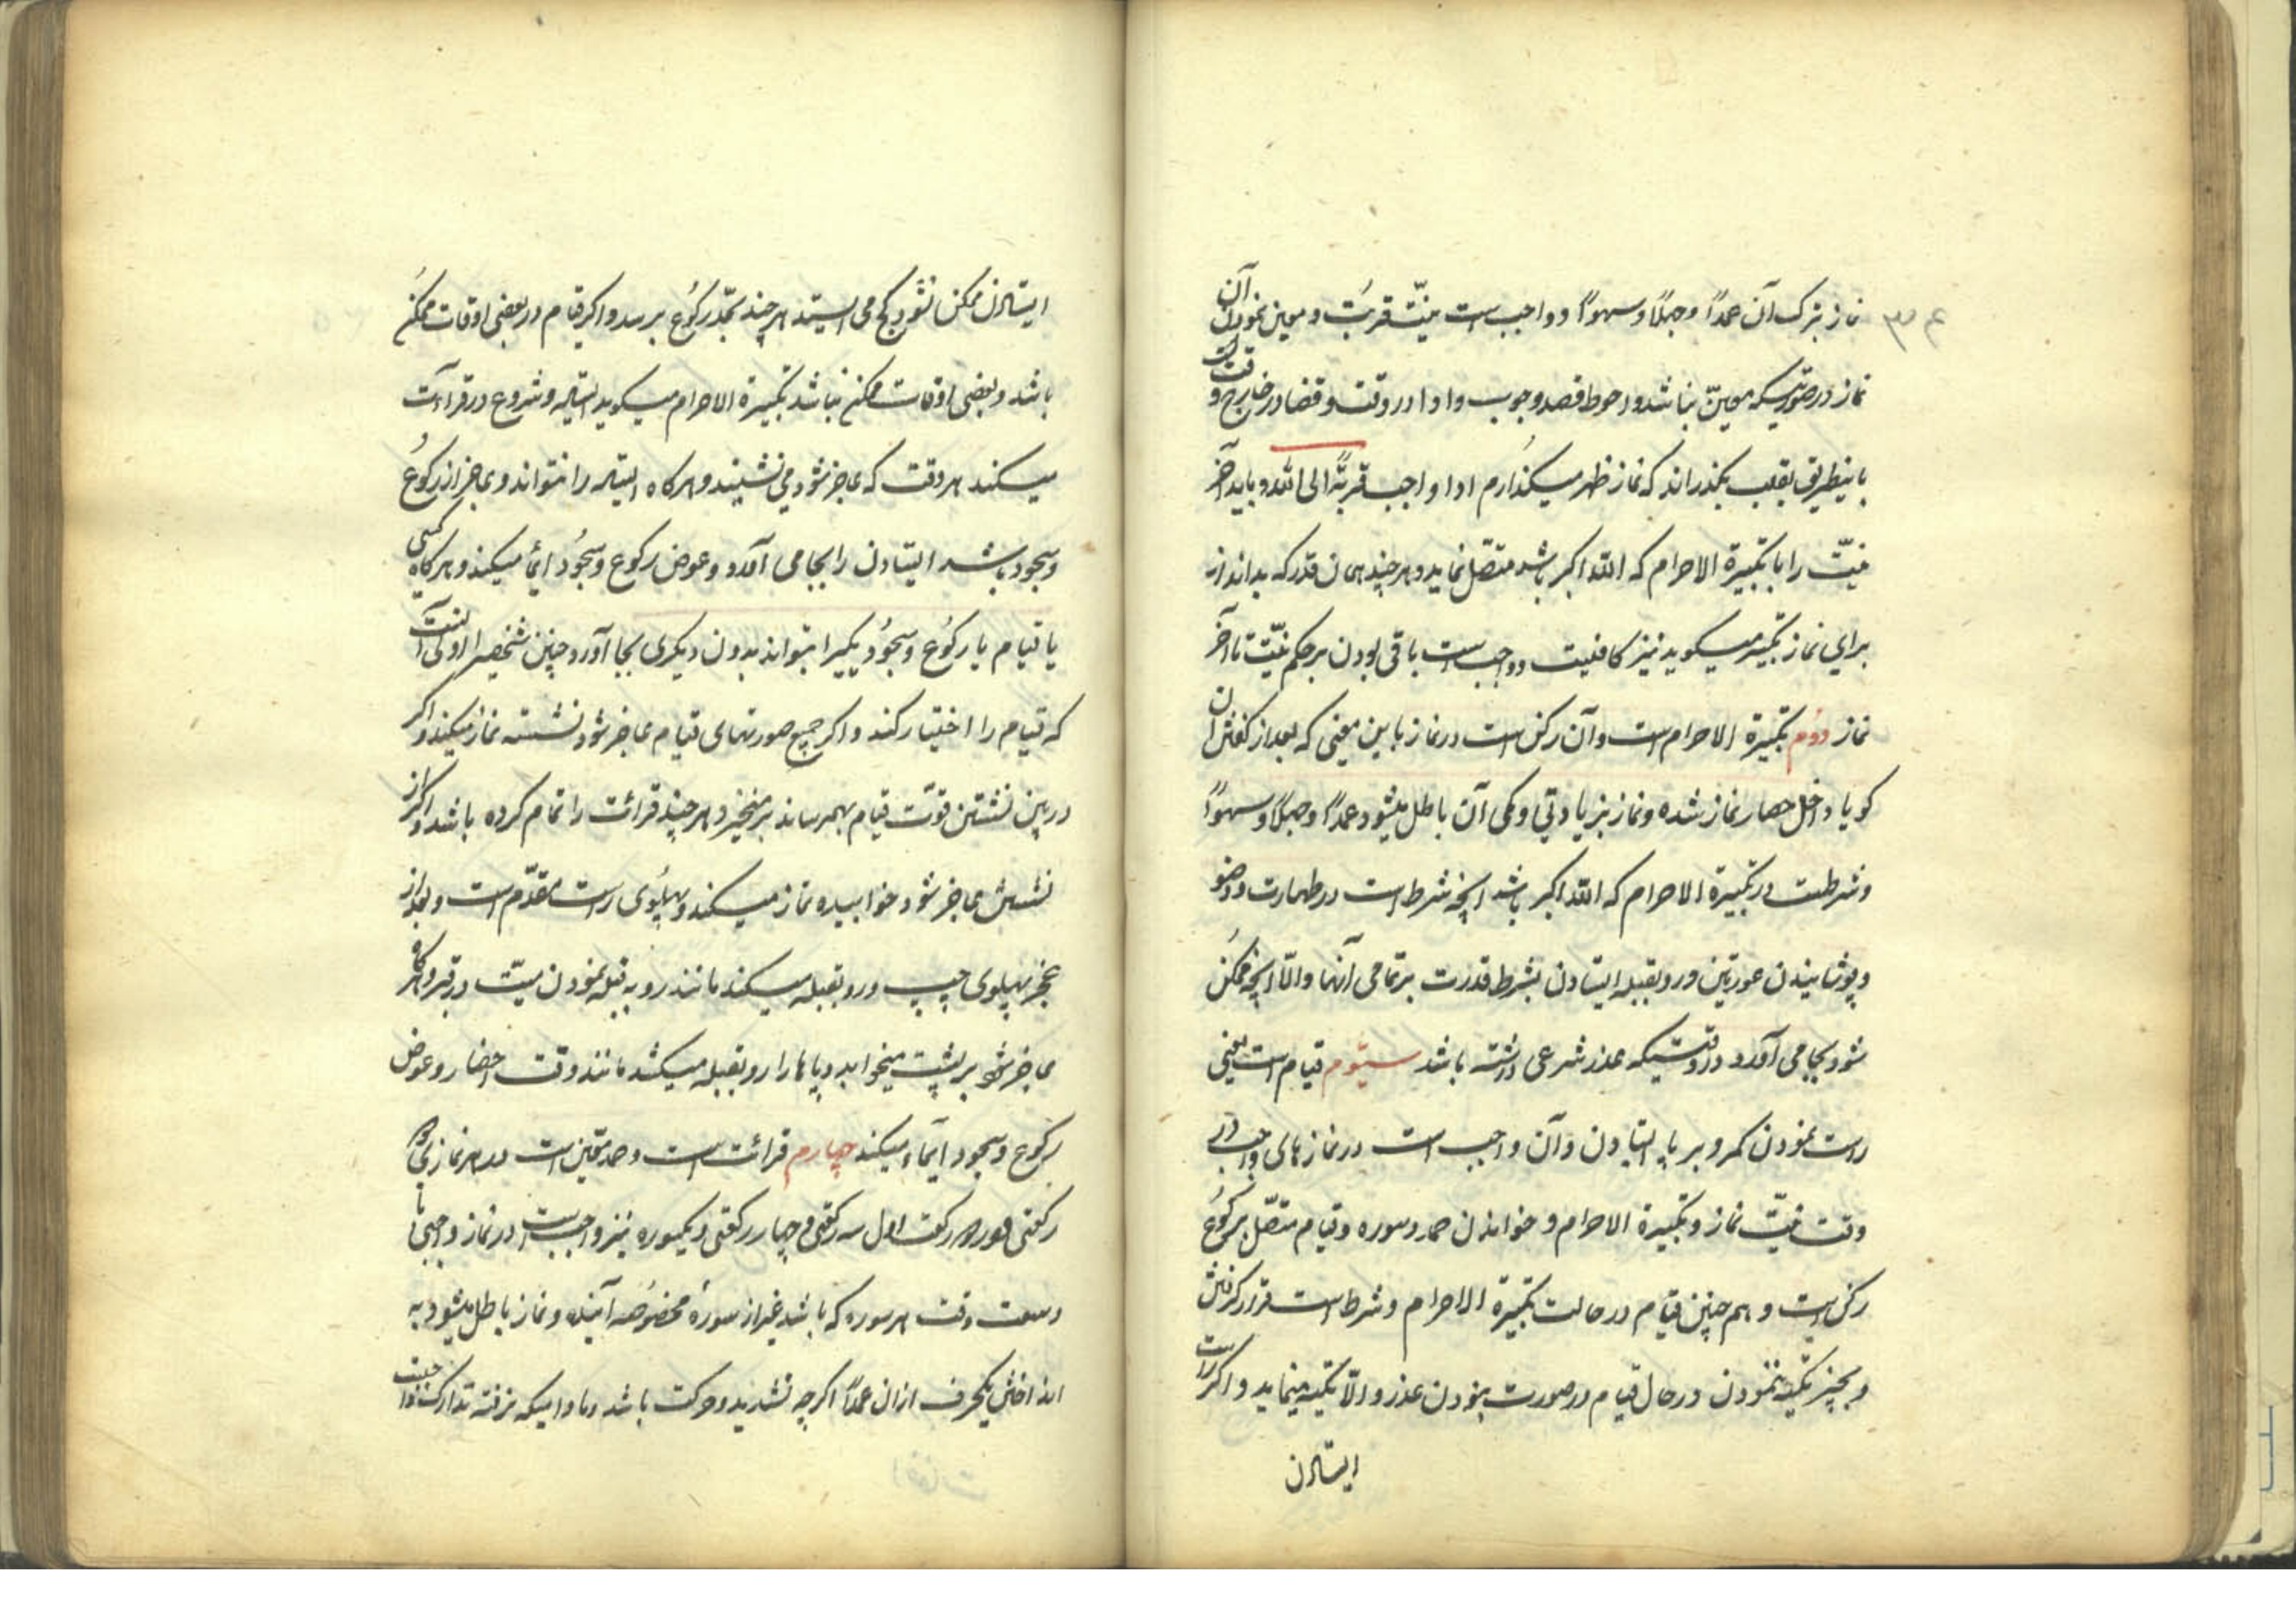 نماز بترک آن عمداً و جهلاً و سهواً و واجب است نیّت قربت و معین نمودن آن
نماز در صورتیکه معیّن نباشد و احوط قصد وجوب و ادا در وقت و قضا در خارج وقت
باینطریق بقلب بگذراند که نماز ظهر میگذارم ادا واجب قربةً الی الله و باید آخر
نیّت را با تکبیرة الاحرام که الله اکبر باشد متصّل نماید و هر چند همان قدر که بداند از
برای نماز تکبیر میگوید نیز کافیست و واجب است باقی بودن بر حکم نیّت تا آخر
نماز دوّم تکبیرة الاحرام است و آن رکن است در نماز باین معنی که بعد از گفتن آن
گویا داخل حصار نماز شده و نماز بزیادتی و کمی آن باطل میشود عمداً و جهلاً و سهواً
و شرطست در تکبیرة الاحرام که الله اکبر باشد انچه شرط است در طهارت و وضو
و پوشانیدن عورتین و رو بقبله ایستادن بشرط قدرت بر تمامی آنها والّا انچه ممکن
شود بجا می آورد در وقتیکه عذر شرعی داشته باشد سیّوم قیام است یعنی
راست نمودن کمر و بر پا ایستادن و آن واجب است در نماز های واجبی در
وقت نیّت نماز و تکبیرة الاحرام و خواندن حمد و سوره و قیام متصّل برکوع
رکن است و هم چنین قیام در حالت تکبیرة الاحرام و شرط است قرار گرفتن
و بچیز تکیه ننمودن در حال قیام در صورت نبودن عذر و الّا تکیه مینماید و اگر راست
ایستادن
ایستادن ممکن نشود کج می ایستد هر چند بحّد رکوع برسد و اگر قیام در بعضی اوقات ممکن
باشد و بعضی اوقات ممکن نباشد تکبیرة الاحرام میگوید ایستاده و شروع در قرائت
میکند هر وقت که عاجز شود می نشیند و هر گاه ایستاده را نتواند و عاجز از رکوع
و سجود باشد ایستادن را بجا می آورد و عوض رکوع و سجود ایمأ میکند و هر گاه کسی
یا قیام یا رکوع و سجود یکیرا بتواند بدون دیگری بجا آورد چنین شخصیرا اولی آنست
که قیام را اختیار کند و اگر جمیع صورتهای قیام عاجز شود نشسته نماز میکند و اگر
در بین نشستن قوّت قیام بهمرساند بر میخیزد هر چند قرائت را تمام کرده باشد و اگر از
نشستن عاجز شود خوابیده نماز میکند و پهلوی راست مقدّم است و بعد از
عجز پهلوی چپ و رو بقبله میکند مانند رو به قبله نمودن میّت در قبر و هر گاه
عاجز شود بر پشت میخوابد و پاها را رو بقبله میکشد مانند وقت احضار و عوض
رکوع و سجود ایمآء میکند چهارم قرائت است و حمد معّین است در هر نماز
رکعتی و در دو رکعت اول سه رکعتی و چهار رکعتی و یکسوره نیز واجب است در نماز واجبی با
وسعت وقت هر سوره که باشد غیر از سورهٔ مخصوصه آینده و نماز باطل میشود به
انداختن یکحرف از ان عمداً اگر چه تشدید و حرکت باشد و مادامیکه نرفته تدارکش واجبست